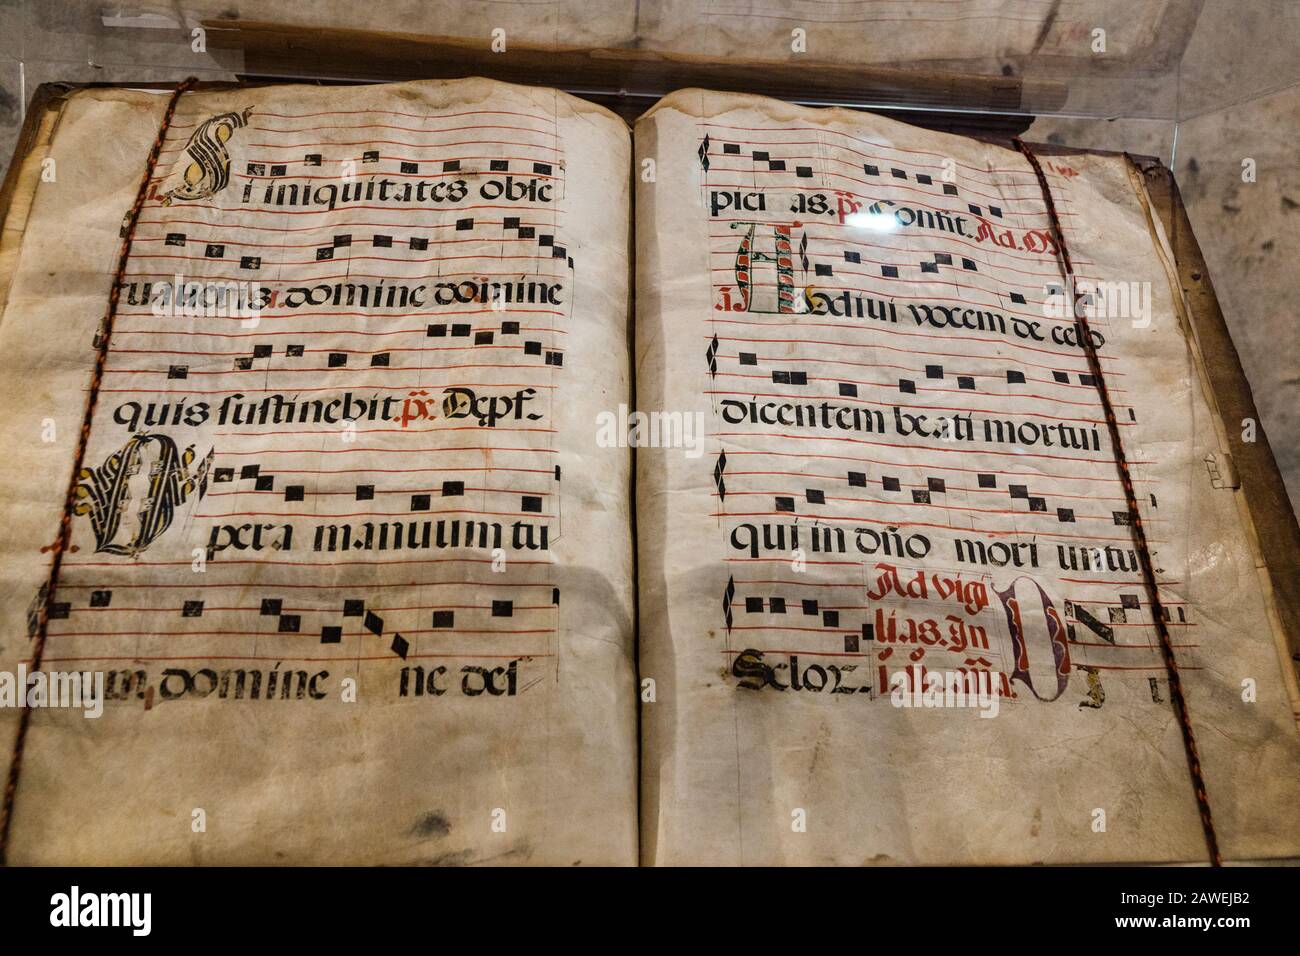 Si iniquitates obse
ruaueris. domine domine
quis sustinebit. ps. De pf.
Opera manuum tu
arum, domine ne des
pici as. ps. Confit. Ad. M
Audiui vocem de celo
dicentem beati mortui
qui in dño moriuntur
Ad vigi
lias. In
Se lor.
alamy
Image ID: 2AWEJB2
www.alamy.com